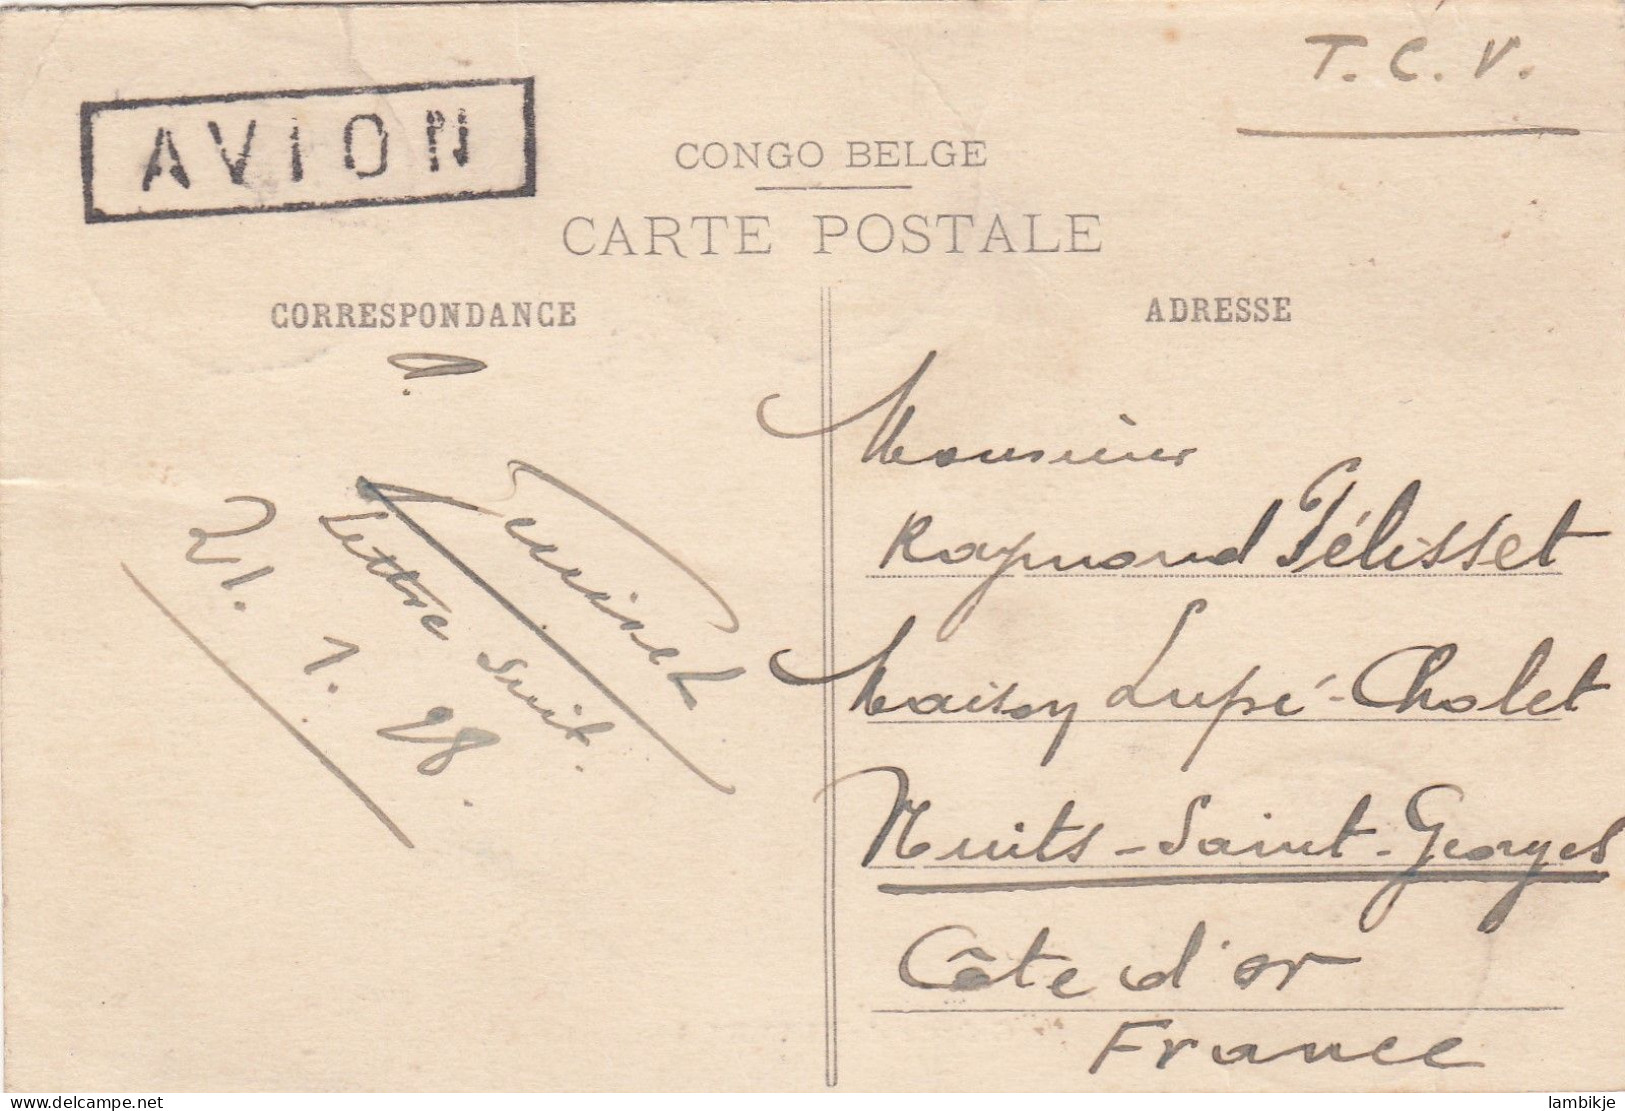 T. C. V.
AVION
CONGO BELGE
CARTE POSTALE
CORRESPONDANCE
ADRESSE
Lettre suit.
21. 1. 28.
Monsieur
Raymond Pélisset
Maison Lupé-Cholet
Nuits-Saint-Georges
Côte d'or
France
delcampe.net
lambikje